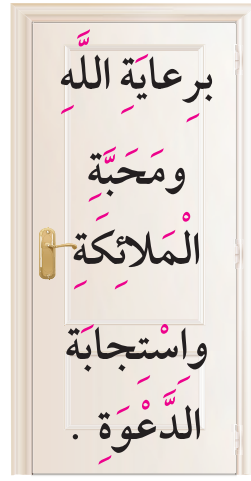 بِرِعايَةِ اللَّهِ
ومَحَبَّةِ
الْمَلائِكَةِ
واَسْتِجابَة
الدَّعْوَةِ .